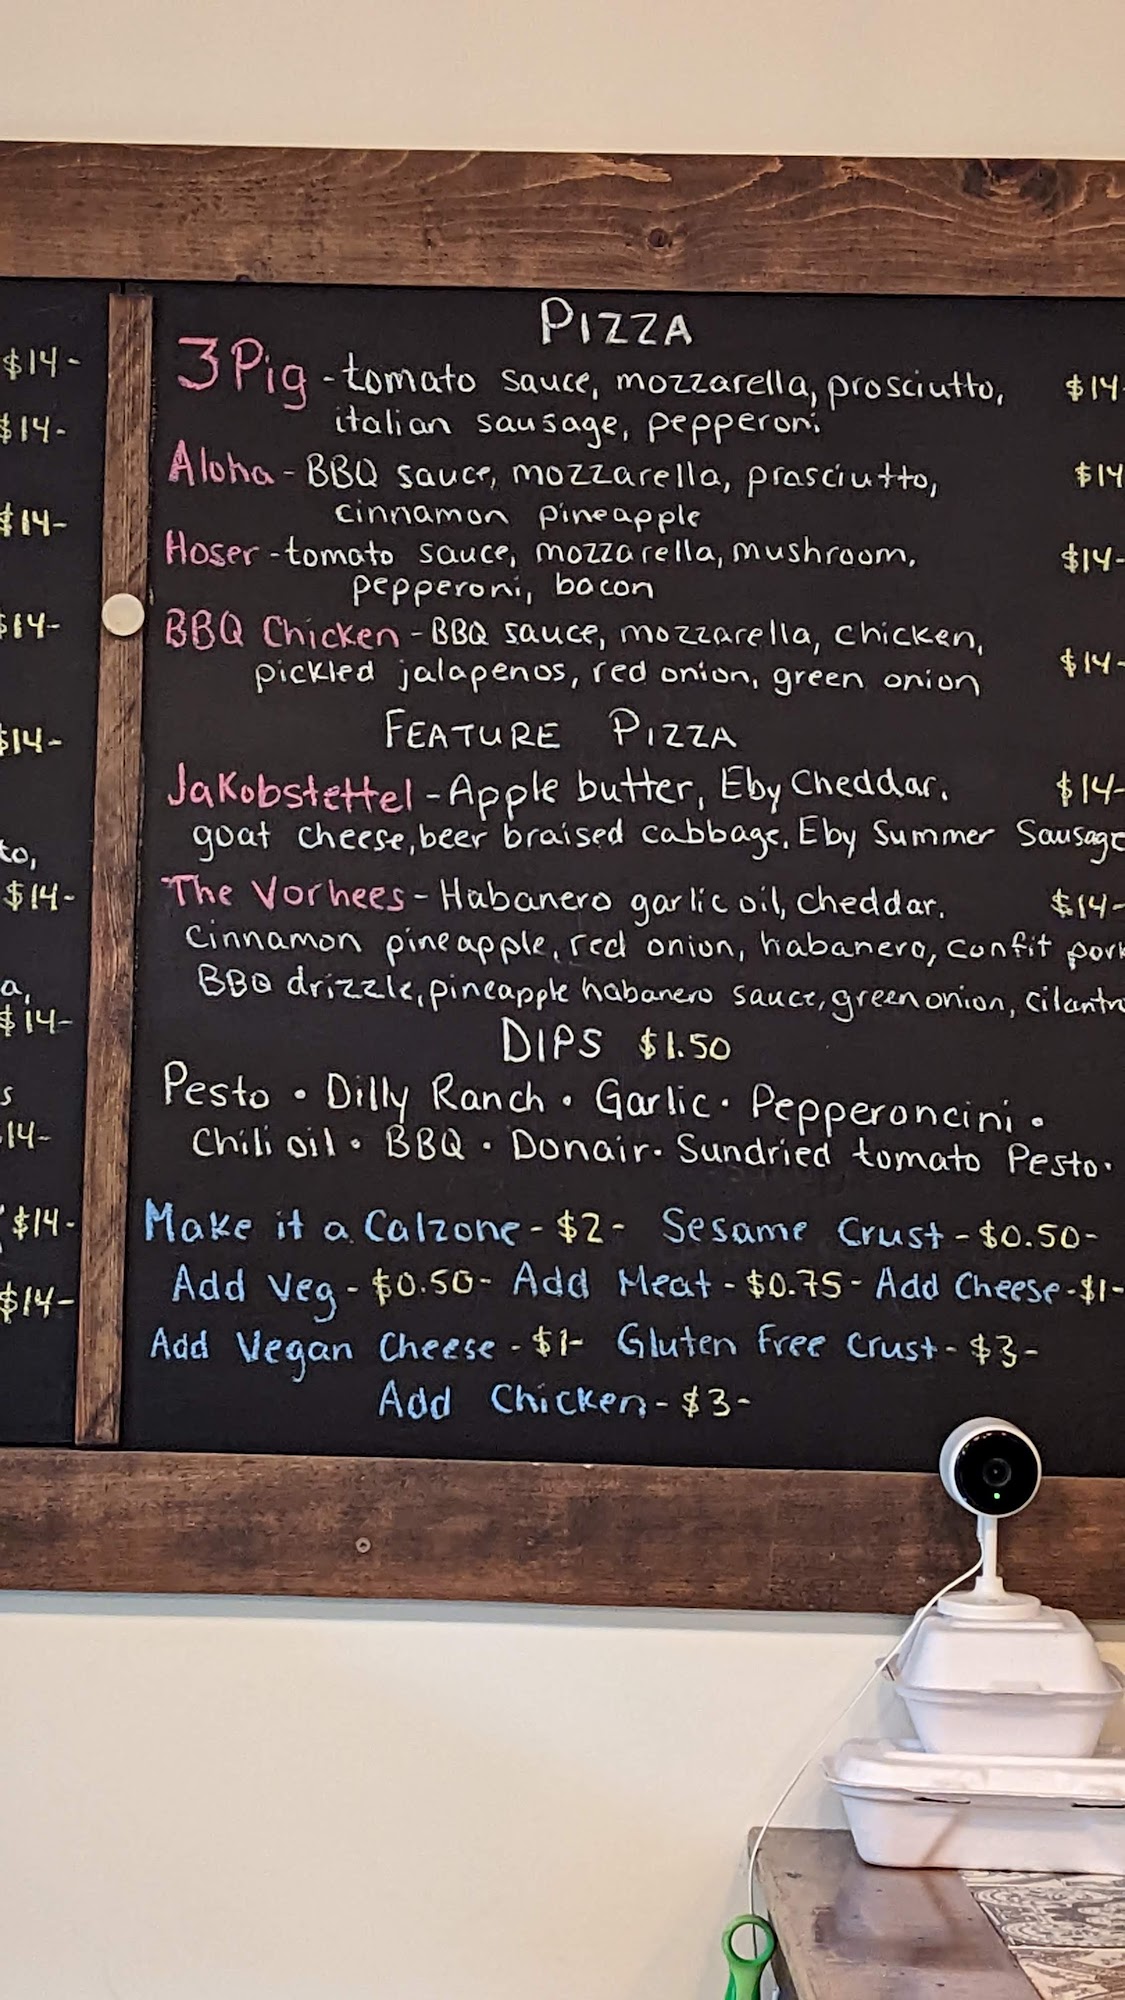 $14-
$14-
$14-
$14-
$14-
to,
$14-
a,
$14-
s
14-
$14-
$14-
PIZZA
3 Pig - tomato sauce, mozzarella, prosciutto, $14-
italian sausage, pepperoni
Aloha - BBQ sauce, mozzarella, prosciutto, $14
cinnamon pineapple
Hoser - tomato sauce, mozzarella, mushroom, $14-
pepperoni, bacon
BBQ Chicken - BBQ sauce, mozzarella, chicken, $14-
pickled jalapenos, red onion, green onion
FEATURE PIZZA
Jakobstettel - Apple butter, Eby Cheddar, $14-
goat cheese, beer braised cabbage, Eby Summer Sausage
The Vorhees - Habanero garlic oil, cheddar, $14-
Cinnamon pineapple, red onion, habanero, confit pork
BBQ drizzle, pineapple habanero sauce, green onion, cilantro
DIPS $1.50
Pesto • Dilly Ranch • Garlic • Pepperoncini •
Chili oil • BBQ • Donair • Sundried tomato Pesto •
Make it a Calzone - $2- Sesame Crust - $0.50-
Add Veg - $0.50- Add Meat - $0.75- Add Cheese - $1-
Add Vegan Cheese - $1- Gluten Free Crust - $3-
Add Chicken - $3-